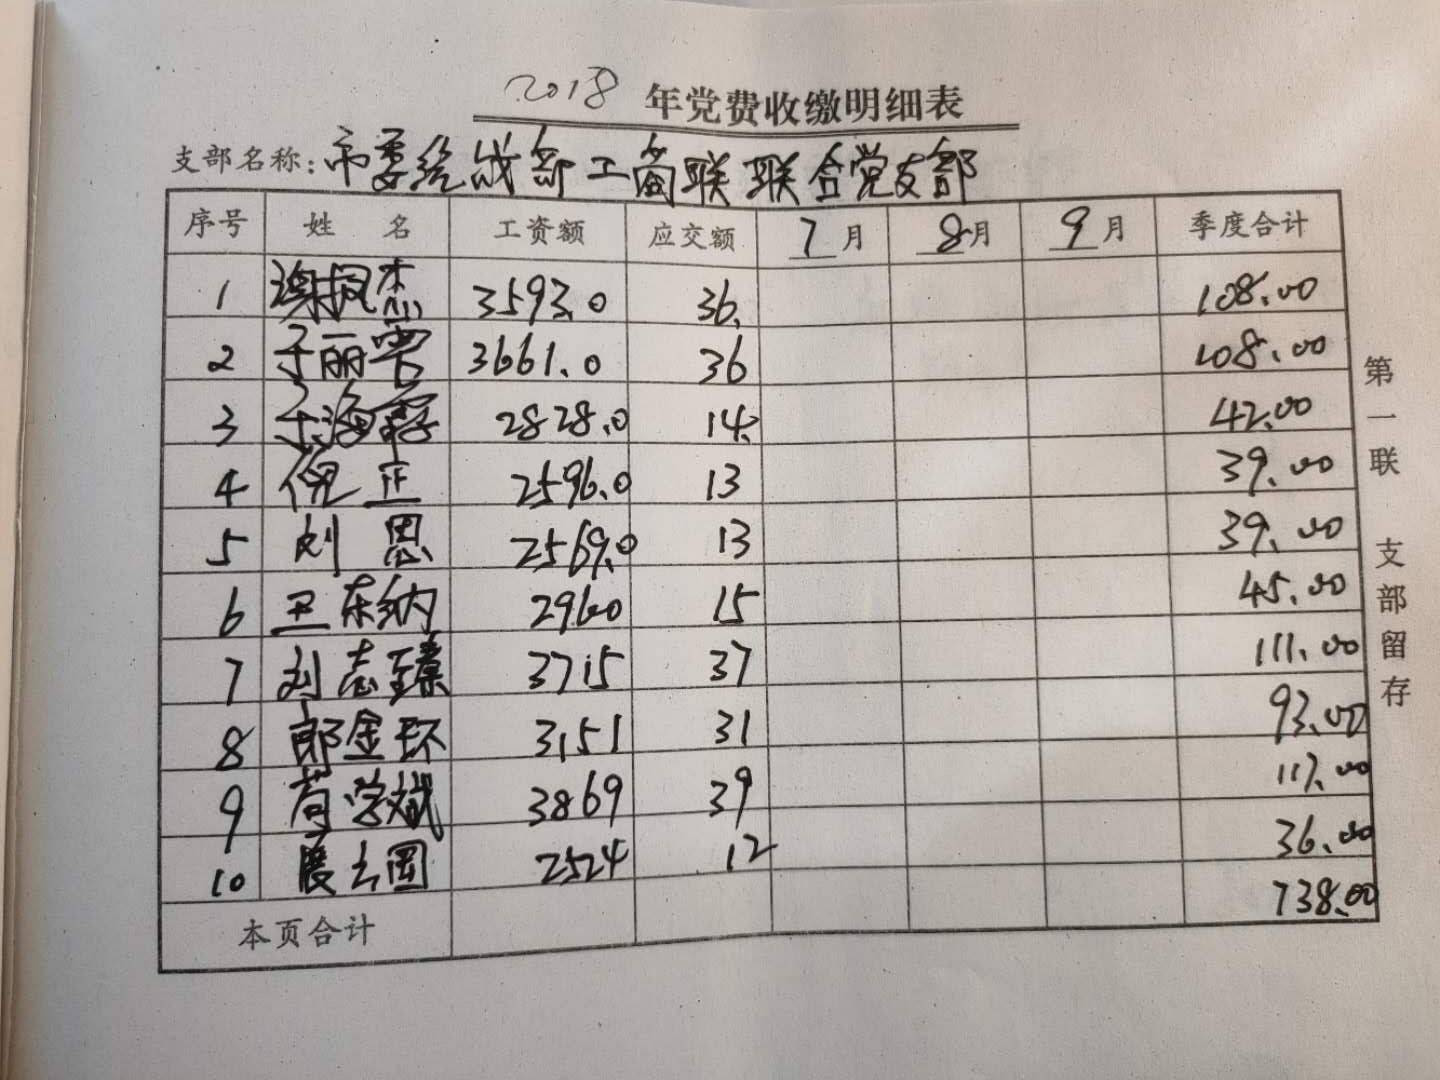 2018 年党费收缴明细表
支部名称：市委统战部工商联联合党支部
序号 姓名 工资额 应交额 7月 8月 9月 季度合计
1 谢枫杰 3593.0 36. 108.00
2 于丽雪 3661.0 36 108.00
3 于海霞 2828.0 14. 42.00
4 倪正 2596.0 13 39.00
5 刘恩 2569.0 13 39.00
6 卫东纳 2960 15 45.00
7 刘志臻 3715 37 111.00
8 郎金环 3151 31 93.00
9 学斌 3869 39 117.00
10 2524 12 36.00
本页合计 738.00
第一联 支部留存